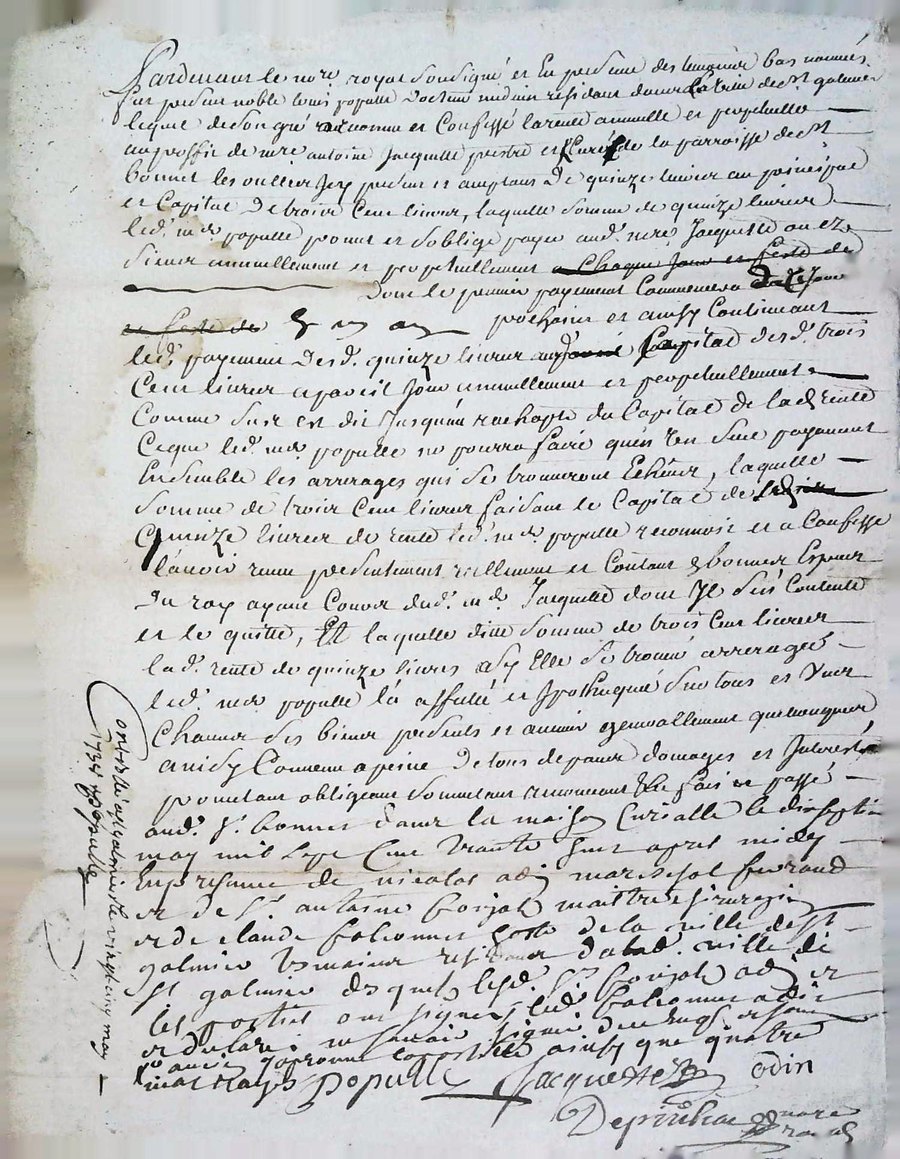 Pardevant le no.re royal soussigné et En presence des temoins bas nommés
fut present noble louis populle docteur medecin residant dans la ville de st galmier
lequel de son gré reconnu et Confessé la rente annuelle et perpetuelle
au proffit de m.re antoine Jacquette prestre et Curé de la parroisse de st
bonnet les oullier Jcy present et acceptant De quinze livres au principal
et Capital De trois Cent livres, laquelle somme de quinze livres
led. m.r populle promet et s'oblige payer aud. m.re Jacquette ou ez
siens annuellement et perpetuellement a Chaque Jour et feste de
Dont le premier payement Commencera
et feste de prochain et ainsy Continuant
led. payement desd. quinze livres Capital desd. trois
Cent livres a pareil Jour annuellement et perpetuellement
Comme sus est dit Jusqu'au rachapt du Capital de lad. rente
Ceque led. m.r populle ne pourra faire qu'en payement
Ensemble les arrerages qui se trouveront Echeus, laquelle
somme de trois Cent livres faisant le Capital de
quinze livres de rente led. m.r populle reconnoit et a Confessé
l'avoir reçue presentement reellement et Contant bonnes Especes
Du roy ayant Cours dud. m.re Jacquette dont Jl s'est Contenté
et le quitte, Et laquelle ditte somme de trois Cent livres
lad. rente de quinze livres Elle se trouve arreragée
led. m.r populle la affecté et Jpothequé sur tous et Uns
Chacuns ses biens presents et avenir generallement quelconques
ainsy Convenu a peine De tous depans domages et Jnterests
promettant obligeant soumettant renonceant fait et passé
aud. st bonnet dans la maison Curialle le dixseptieme
may mil sept Cent trante huit apres midy
En presence de nicolas odin mareschal ferrand
et de s.r antoine maitre chirurgien
et de claude falconnet de la ville de st
galmier temoins residant a lad. ville de
st galmier desquels led. s.r odin et
les parties ont signé, led. falconnet a dit
et declaré ne scavoir signé
ainsy que quatre
Populle Jacquette odin
no.re
Contrôlé a st galmier le vingt cinq may
1738 Populle